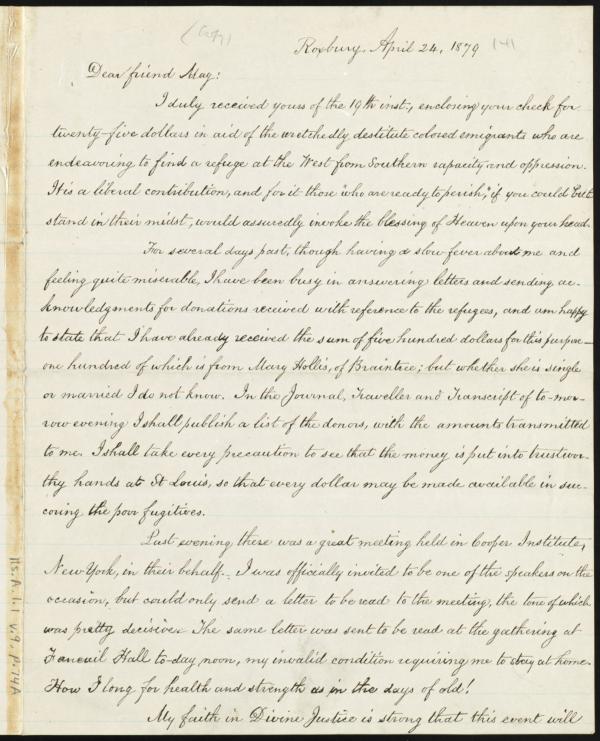 (Copy)
Roxbury, April 24, 1879
Dear friend May:
I duly received yours of the 19th inst., enclosing your check for
twenty-five dollars in aid of the wretchedly destitute colored emigrants who are
endeavoring to find a refuge at the West from Southern rapacity and oppression.
It is a liberal contribution, and for it those "who are ready to perish," if you could but
stand in their midst, would assuredly invoke the blessing of Heaven upon your head.
For several days past, though having a slow fever about me and
feeling quite miserable, I have been busy in answering letters and sending ac-
knowledgments for donations received with reference to the refugees, and am happy
to state that I have already received the sum of five hundred dollars for this purpose—
one hundred of which is from Mary Hollis, of Braintree; but whether she is single
or married I do not know. In the Journal, Traveller and Transcript of to-mor-
row evening I shall publish a list of the donors, with the amounts transmitted
to me. I shall take every precaution to see that the money is put into trustwor-
thy hands at St Louis, so that every dollar may be made available in suc-
coring the poor fugitives.
Last evening there was a great meeting held in Cooper Institute,
New York, in their behalf. I was officially invited to be one of the speakers on the
occasion, but could only send a letter to be read to the meeting, the tone of which
was pretty decisive. The same letter was sent to be read at the gathering at
Faneuil Hall to-day, noon, my invalid condition requiring me to stay at home.
How I long for health and strength as in the days of old!
My faith in Divine Justice is strong that this event will
Ms.A.1.1 v.9, p.74A